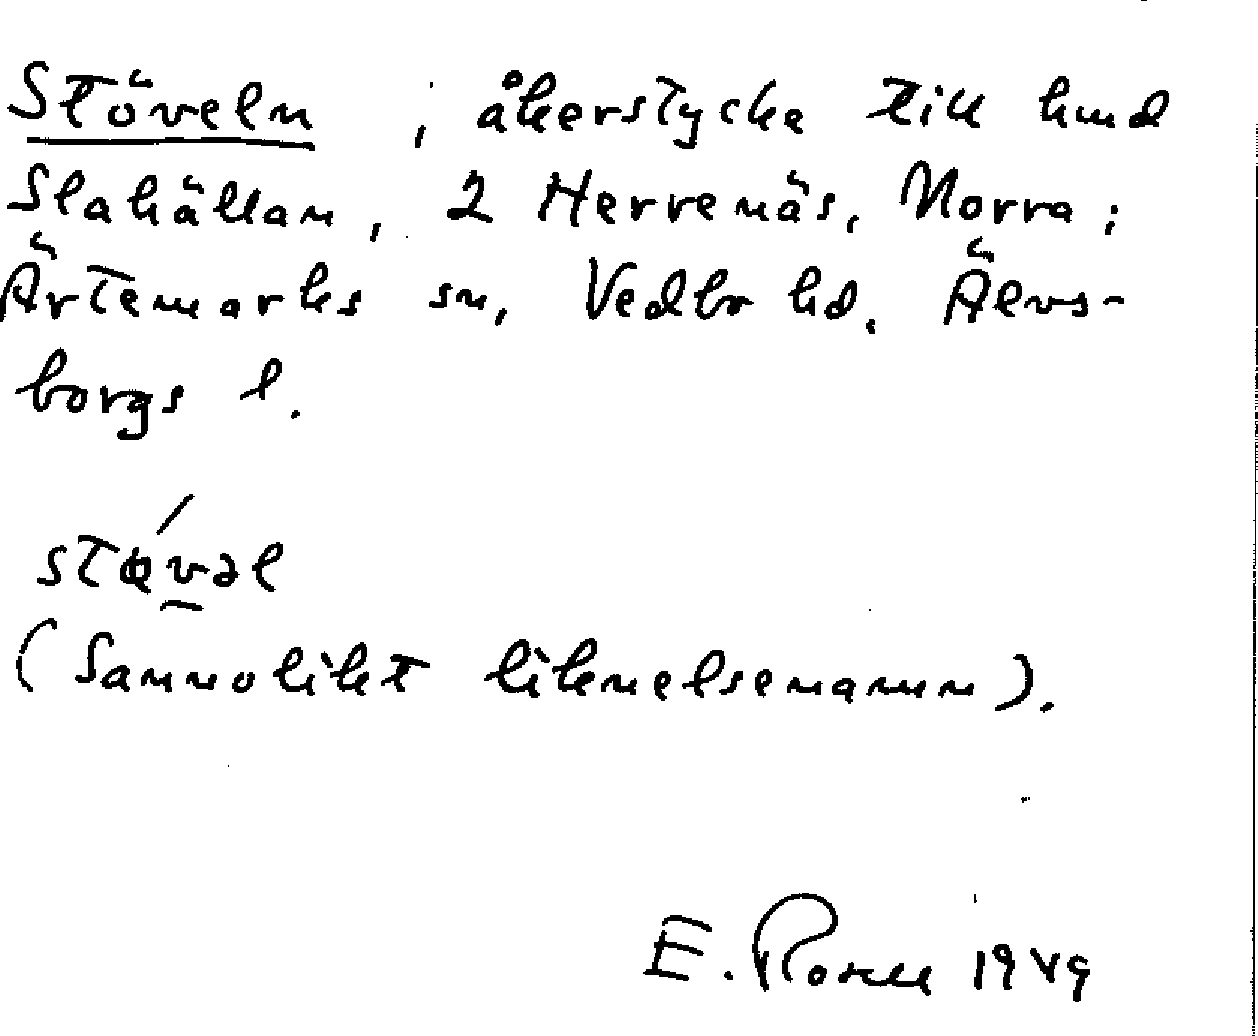 Stöveln , åkerstycke till hmd
Slakällan, 2 Herrenäs, Norra ;
Ärtemarks sn, Vedbo hd. Älvs-
borgs l.
(Sannolikt liknelsenamn).
E. 1949